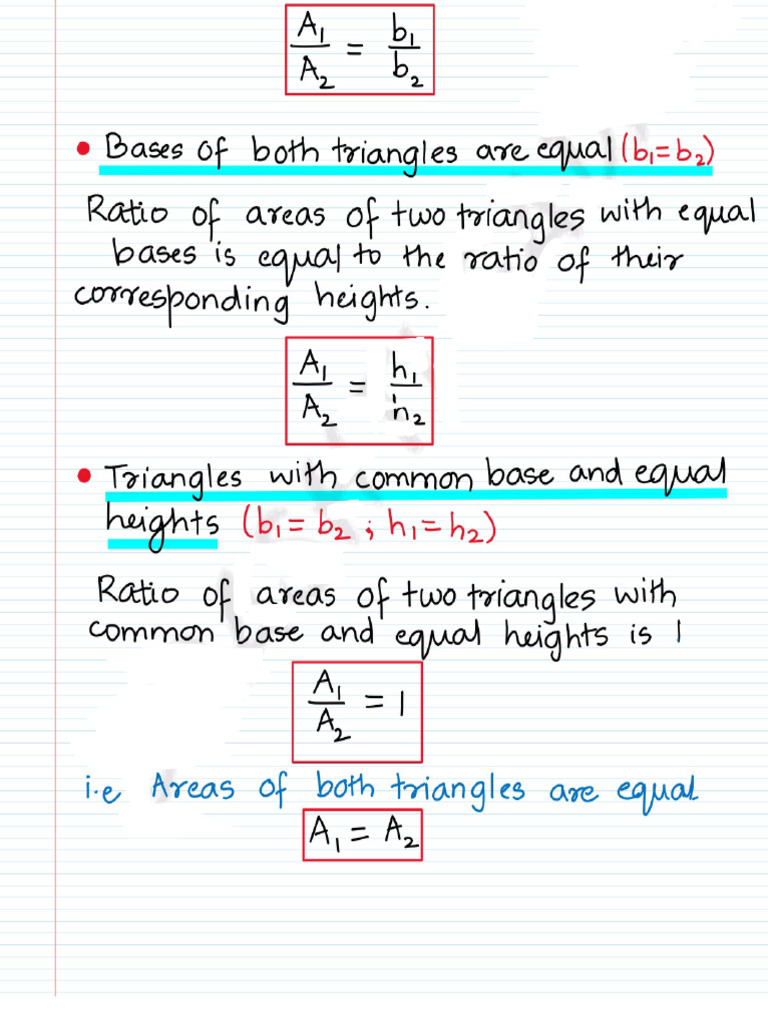 A₁/A₂ = b₁/b₂
• Bases of both triangles are equal (b₁=b₂)
Ratio of areas of two triangles with equal
bases is equal to the ratio of their
corresponding heights.
A₁/A₂ = h₁/h₂
• Triangles with common base and equal
heights (b₁= b₂ ; h₁= h₂)
Ratio of areas of two triangles with
common base and equal heights is 1
A₁/A₂ = 1
i.e Areas of both triangles are equal
A₁ = A₂